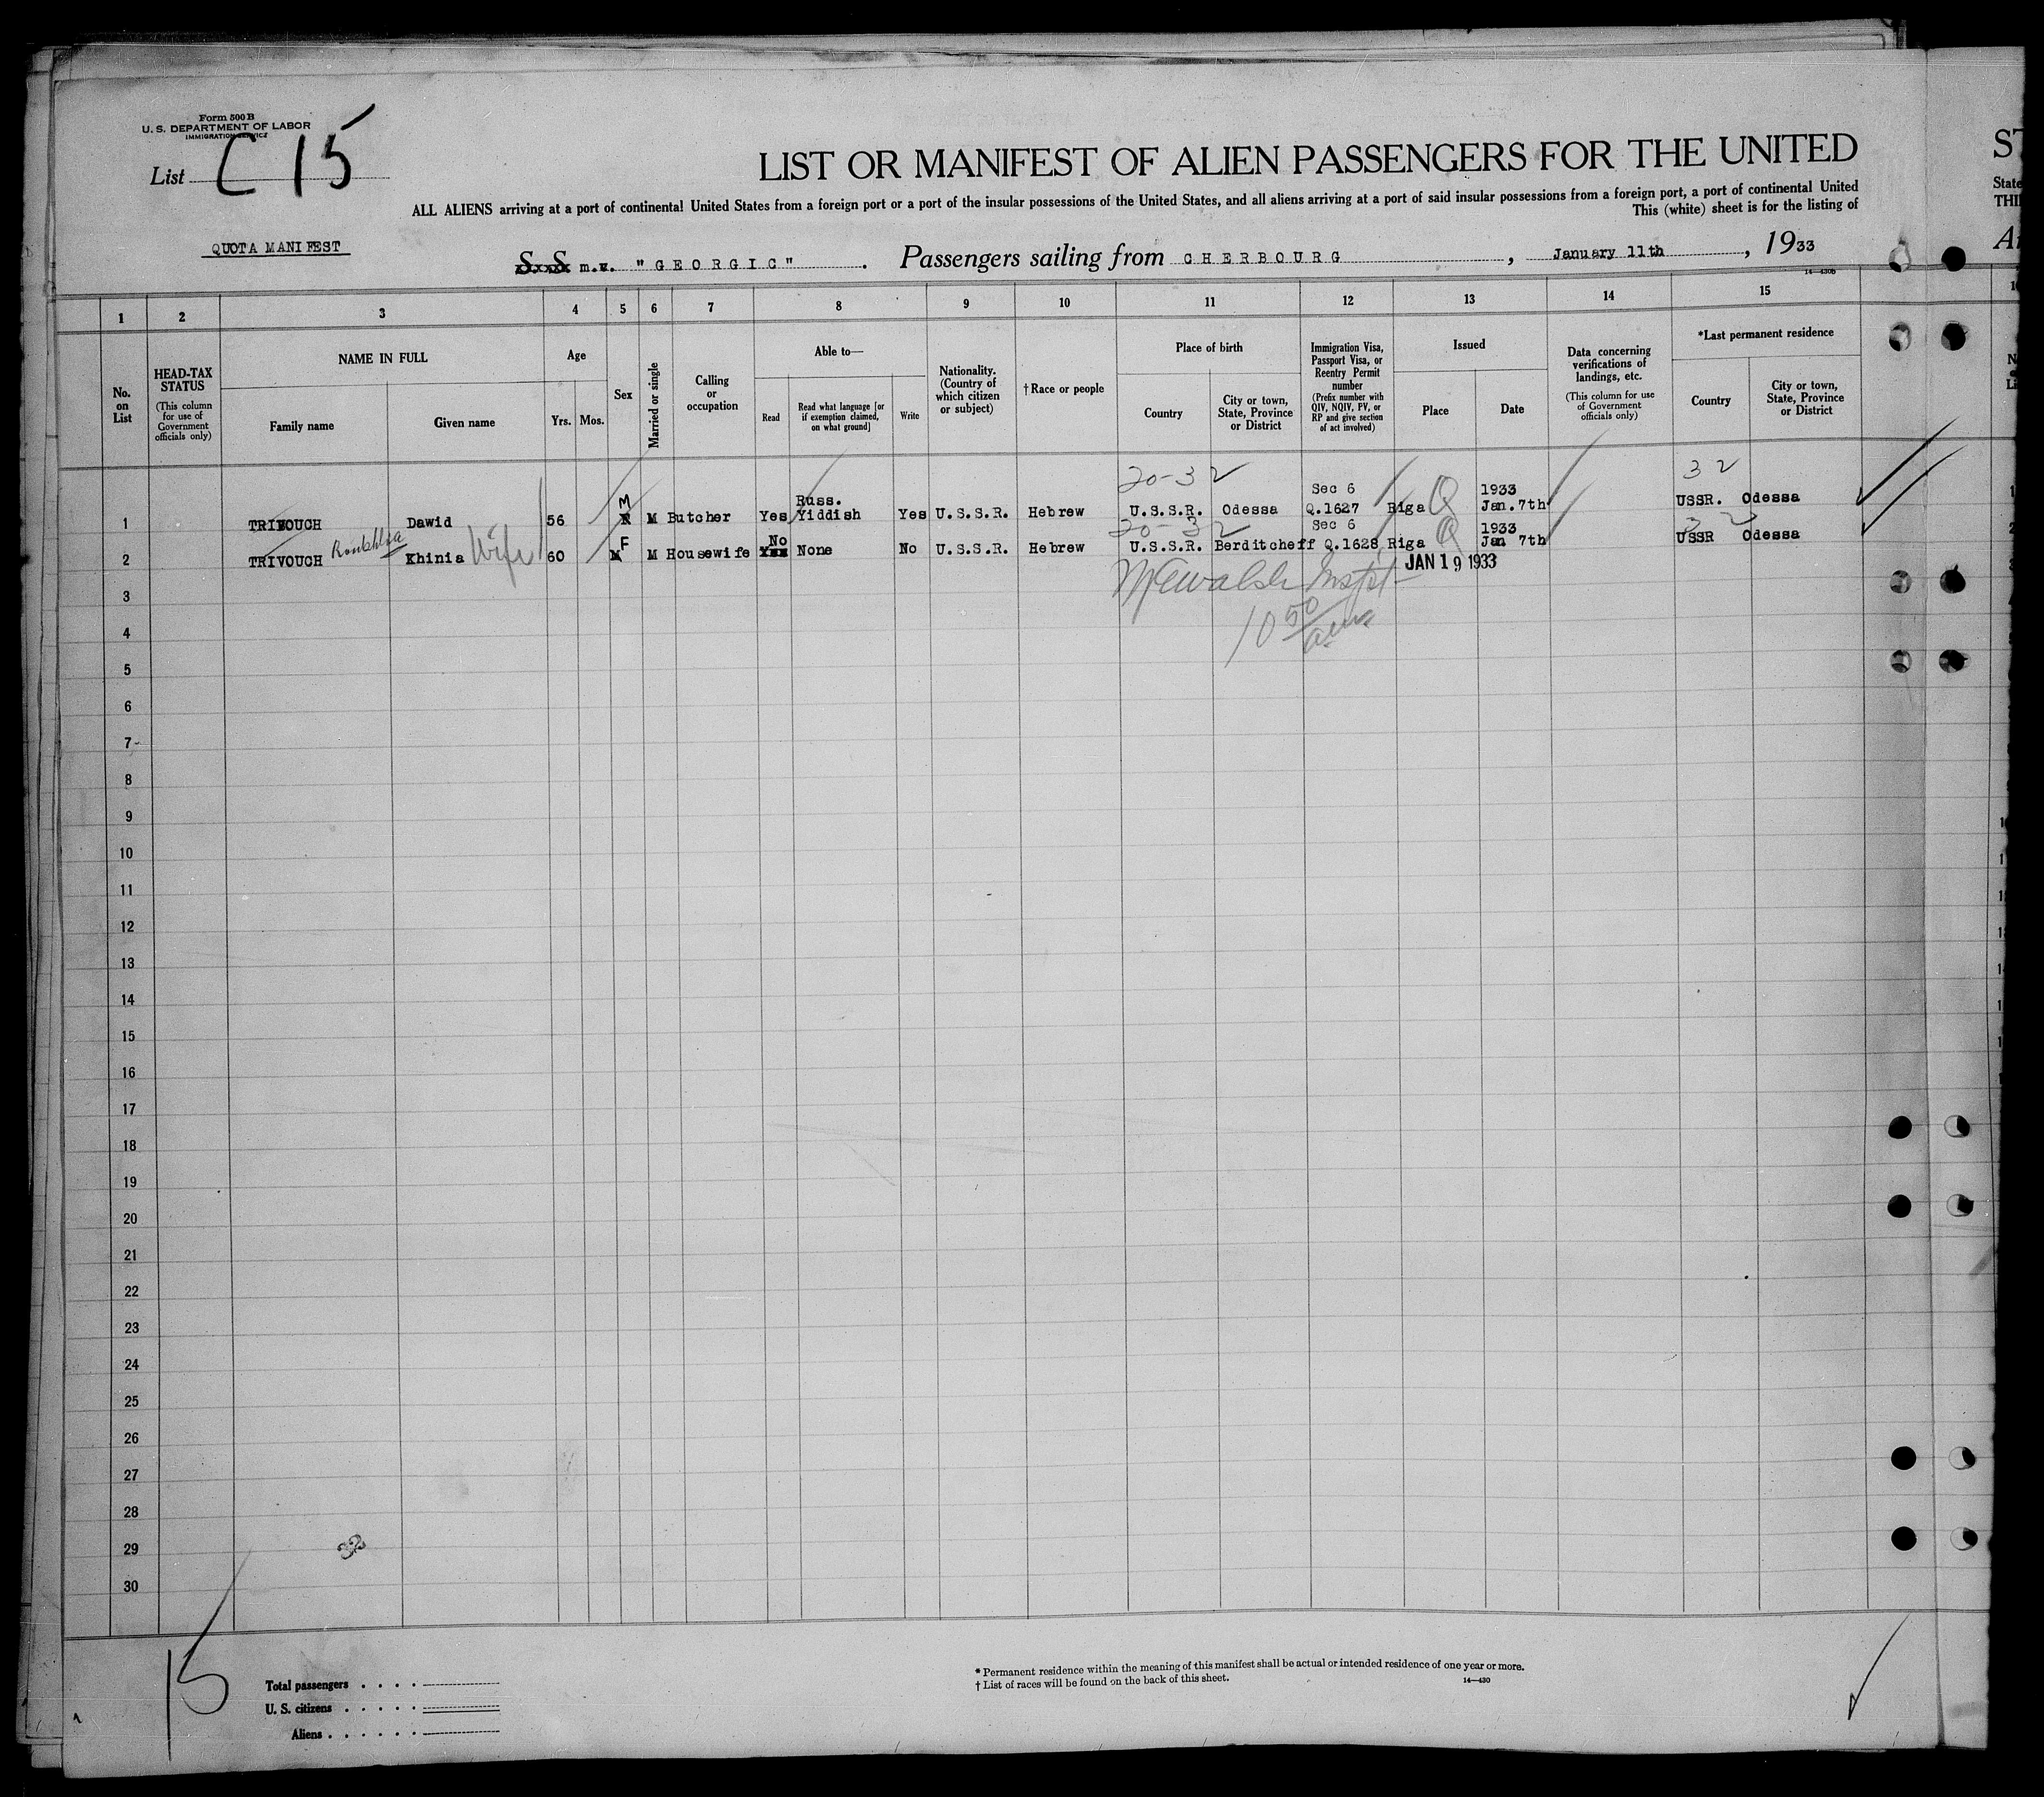 Form 500 B
U. S. DEPARTMENT OF LABOR
IMMIGRATION SERVICE
List C 15
LIST OR MANIFEST OF ALIEN PASSENGERS FOR THE UNITED
ALL ALIENS arriving at a port of continental United States from a foreign port or a port of the insular possessions of the United States, and all aliens arriving at a port of said insular possessions from a foreign port, a port of continental United
This (white) sheet is for the listing of
ST
State
THI
QUOTA MANIFEST
S. S. m.v. "GEORGIC". Passengers sailing from CHERBOURG, January 11th, 1933
14—430b
1 2 3 4 5 6 7 8 9 10 11 12 13 14 15
No. on List
HEAD-TAX STATUS
(This column for use of Government officials only)
NAME IN FULL
Family name
Given name
Age
Yrs. Mos.
Sex
Married or single
Calling or occupation
Able to—
Read
Read what language [or if exemption claimed, on what ground]
Write
Nationality. (Country of which citizen or subject)
† Race or people
Place of birth
Country
City or town, State, Province or District
Immigration Visa, Passport Visa, or Reentry Permit number
(Prefix number with QIV, NQIV, PV, or RP and give section of act involved)
Issued
Place
Date
Data concerning verifications of landings, etc.
(This column for use of Government officials only)
*Last permanent residence
Country
City or town, State, Province or District
20-32
32
M Russ. Sec 6 1933
1 TRIVOUCH Dawid 56 M Butcher Yes Yiddish Yes U.S.S.R. Hebrew U.S.S.R. Odessa Q.1627 Riga Q Jan.7th USSR. Odessa
20-32
32
F No Sec 6 1933
2 TRIVOUCH Khinia Wife 60 M M Housewife None No U.S.S.R. Hebrew U.S.S.R. Berditcheff Q.1628 Riga Q Jan 7th USSR Odessa
JAN 19 1933
3
10 50/am
4
5
6
7
8
9
10
11
12
13
14
15
16
17
18
19
20
21
22
23
24
25
26
27
28
29
32
30
15
Total passengers
U. S. citizens
Aliens
* Permanent residence within the meaning of this manifest shall be actual or intended residence of one year or more.
† List of races will be found on the back of this sheet.
14—430